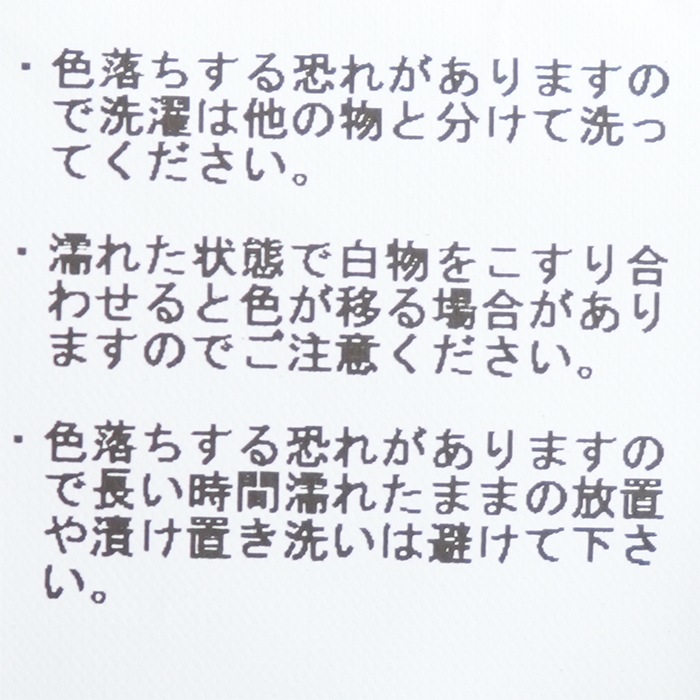 ・色落ちする恐れがありますの
で洗濯は他の物と分けて洗っ
てください。
・濡れた状態で白物をこすり合
わせると色が移る場合があり
ますのでご注意ください。
・色落ちする恐れがありますの
で長い時間濡れたままの放置
や漬け置き洗いは避けて下さ
い。